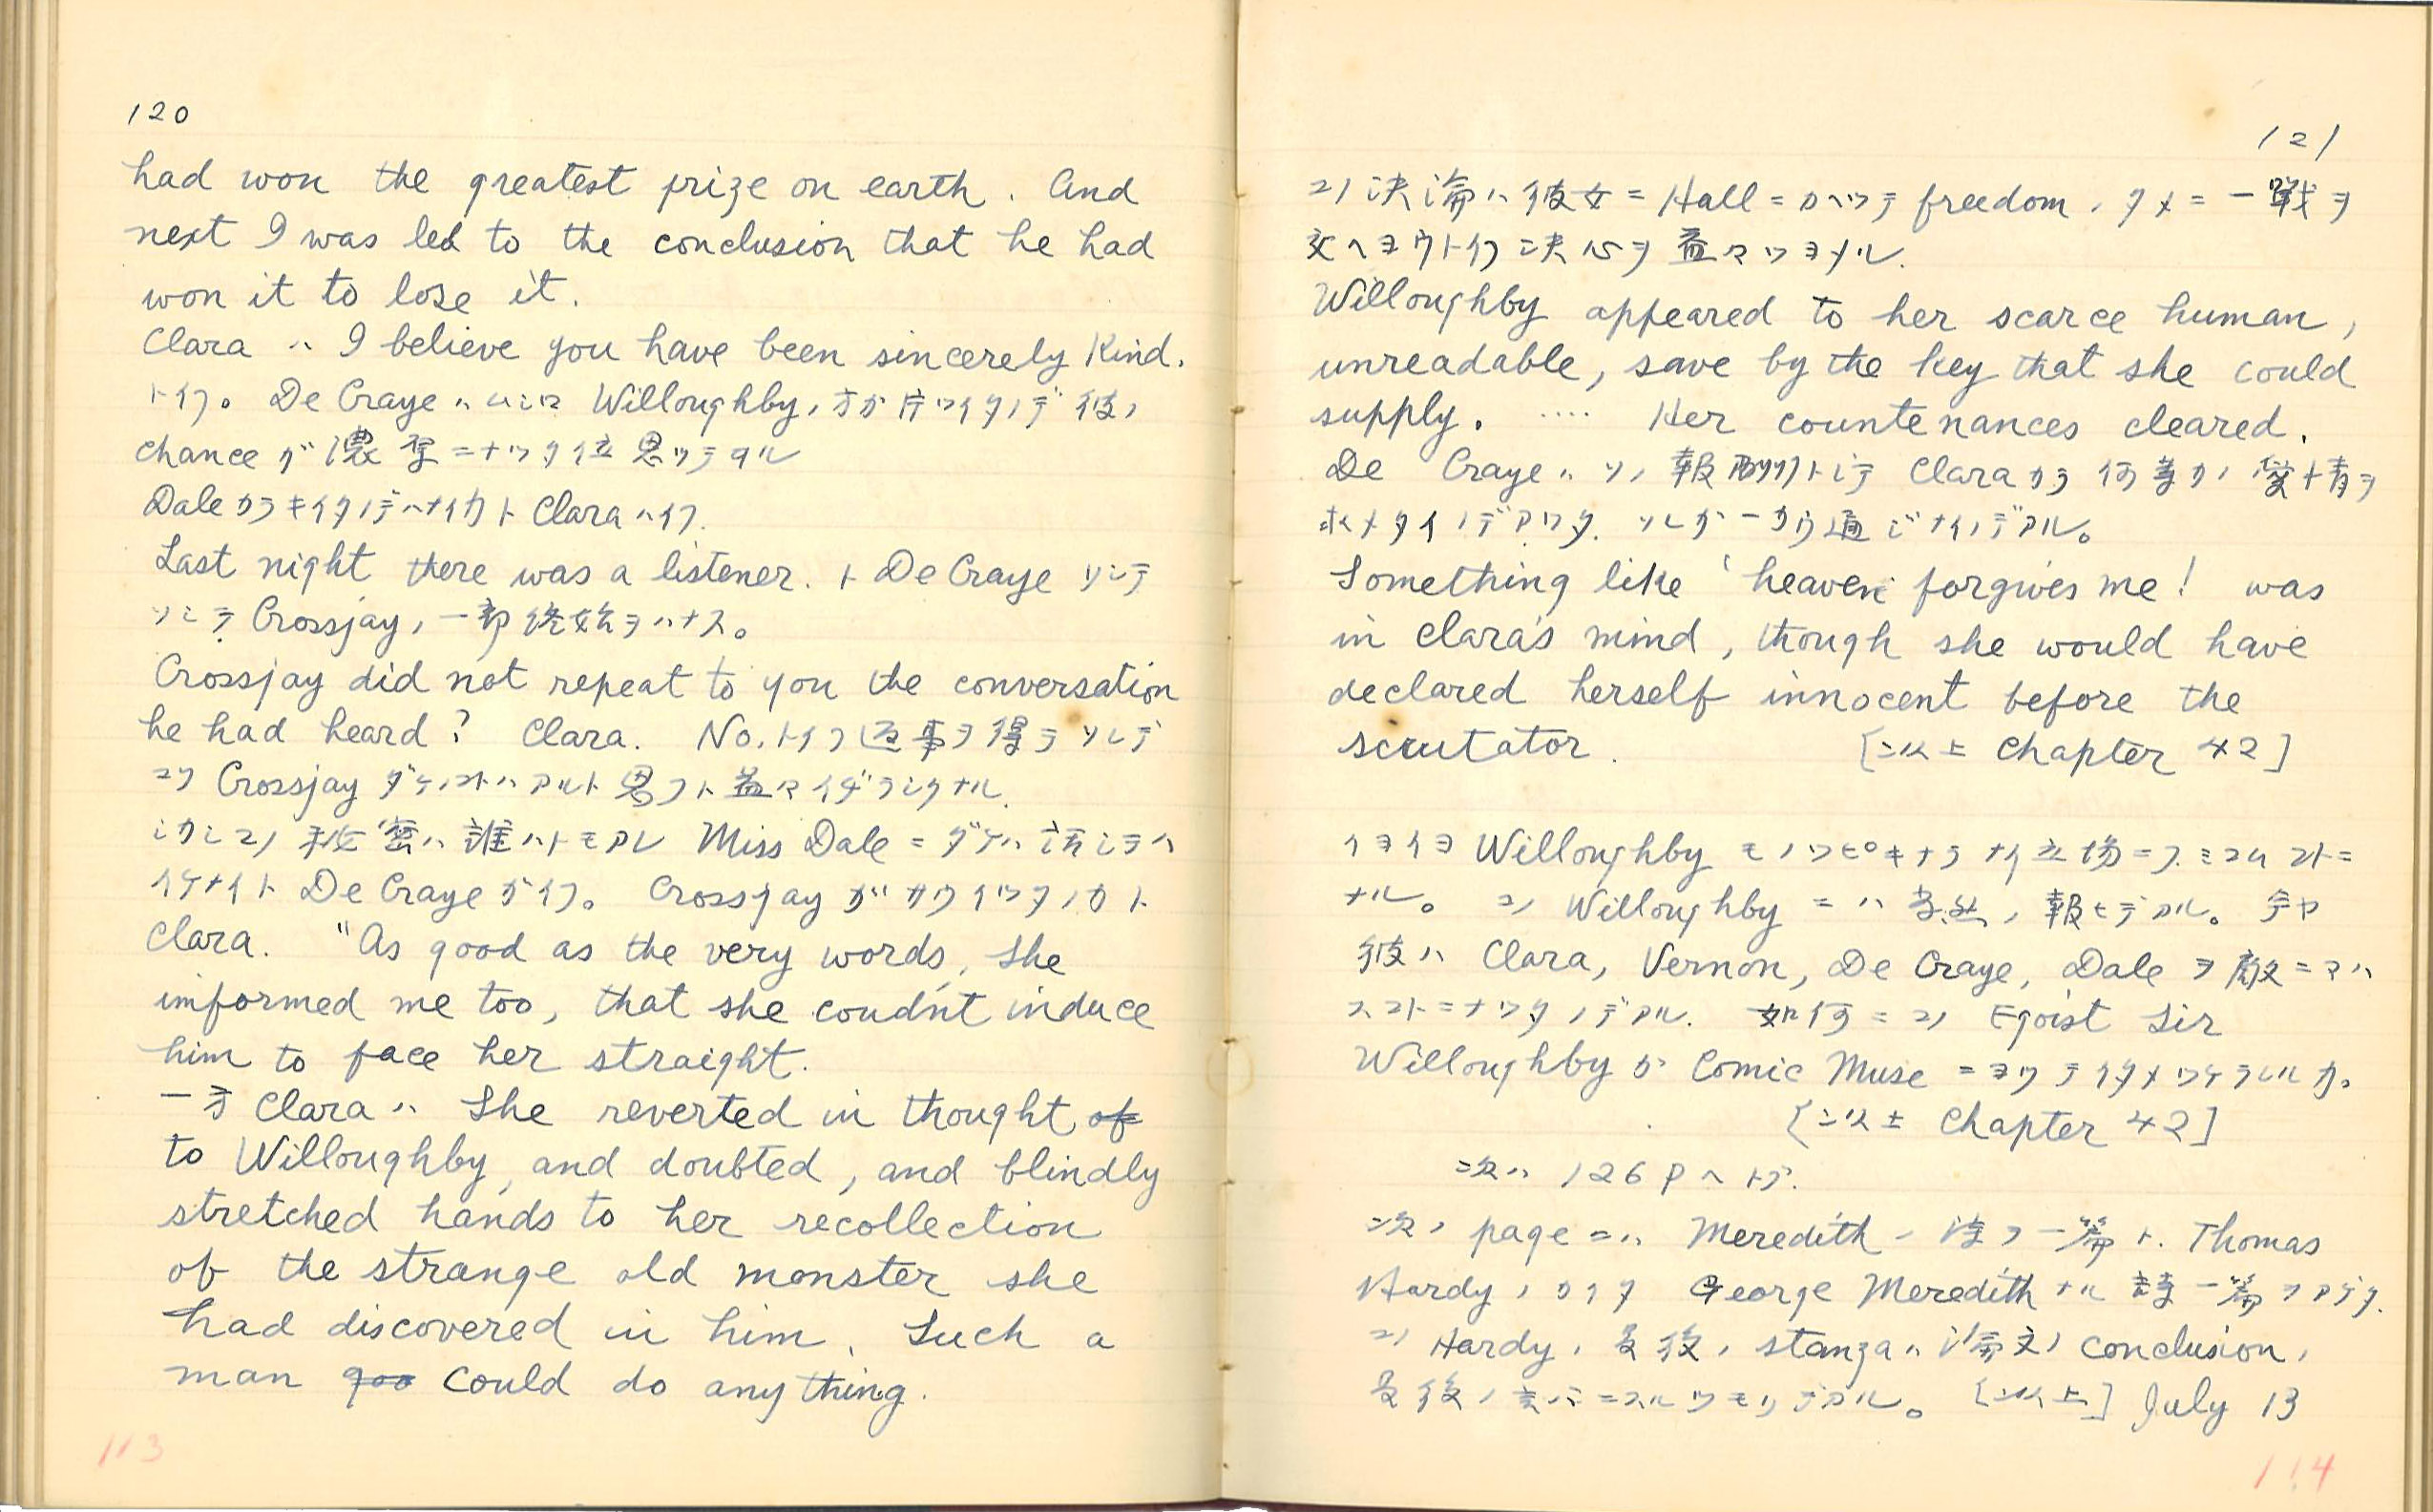 120
had won the greatest prize on earth. And
next I was led to the conclusion that he had
won it to lose it.
Clara ハ I believe you have been sincerely kind.
トイフ。 De Craye ハムシロ Willoughby ノ方ガ片ヅイタノデ彼ノ
chance ガ濃翠ニナツタ位思ツテヰル
Dale カラキイタノデハナイカト Clara ハイフ.
Last night there was a listener. ト De Craye ソシテ
ソシテ Crossjay ノ一部終始ヲハナス。
Crossjay did not repeat to you the conversation
he had heard? Clara. No. トイフ返事ヲ得テソレデ
コソ Crossjay ダケノコトハアルト思フト益々イヂラシクナル.
シカシコノ秘密ハ誰ハトモアレ Miss Dale ニダケハ話シテハ
イケナイト De Craye ガイフ。 Crossjay ガサウイツタノカト
Clara. "As good as the very words, She
informed me too, that she coudn't induce
him to face her straight.
一方 Clara ハ She reverted in thought of
to Willoughby, and doubted, and blindly
stretched hands to her recollection
of the strange old monster she
had discovered in him. Such a
man goo could do anything.
113
121
コノ決論ハ彼女ニ Hall ニカヘツテ freedom ノタメニ一戦ヲ
交ヘヨウトイフ決心ヲ益々ツヨメル.
Willoughby appeared to her scarce human,
unreadable, save by the key that she could
supply. .... Her countenances cleared.
De Craye ハソノ報酬トシテ Clara カラ何等カノ愛情ヲ
求メタイノデアツタ. ソレガ一カウ通ジナイノデアル。
Something like 'heaven forgives me! was
in Clara's mind, though she would have
declared herself innocent before the
scrutator. [以上 Chapter 42]
イヨイヨ Willoughby モノツピキナラナイ立場ニフミコムコトニ
ナル。 コノ Willoughby ニハ当然ノ報ヒデアル。 今ヤ
彼ハ Clara, Vernon, De Craye, Dale ヲ敵ニマハ
スコトニナツタノデアル. 如何ニコノ Egoist Sir
Willoughby ガ Comic Muse ニヨツテイタメツケラレルカ。
[以上 Chapter 42]
次ハ 126 P ヘトブ.
次ノ page ニハ Meredith ノ 一篇ト. Thomas
Hardy ノカイタ George Meredith ナル詩一篇ヲアゲタ.
コノ Hardy ノ最後ノ stanza ハ論文ノ conclusion ノ
最後ノ言バニスルツモリデアル。 [以上] July 13
114